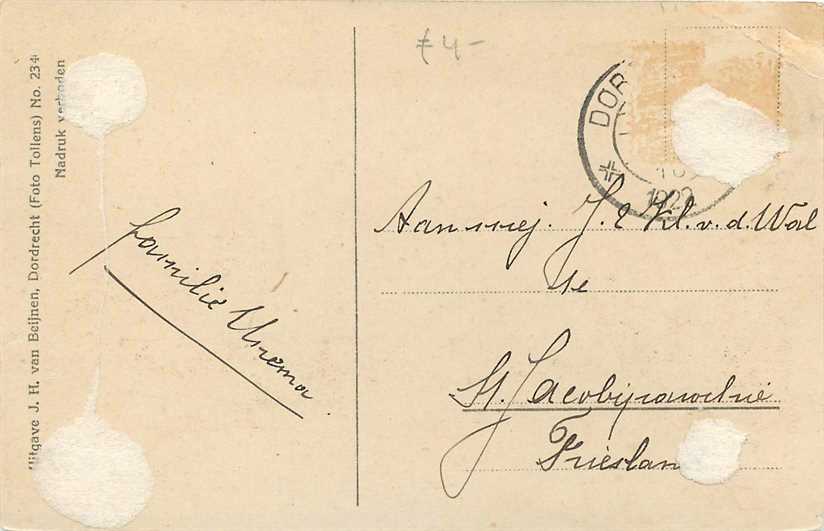 Uitgave J. H. van Beijnen, Dordrecht (Foto Tollens) No. 234
Nadruk verboden
familie
f 4-
DOR
1922
Aan mej. J. & Kl. v. d. Wal
te
St. Jacobiparochie
Frieslan